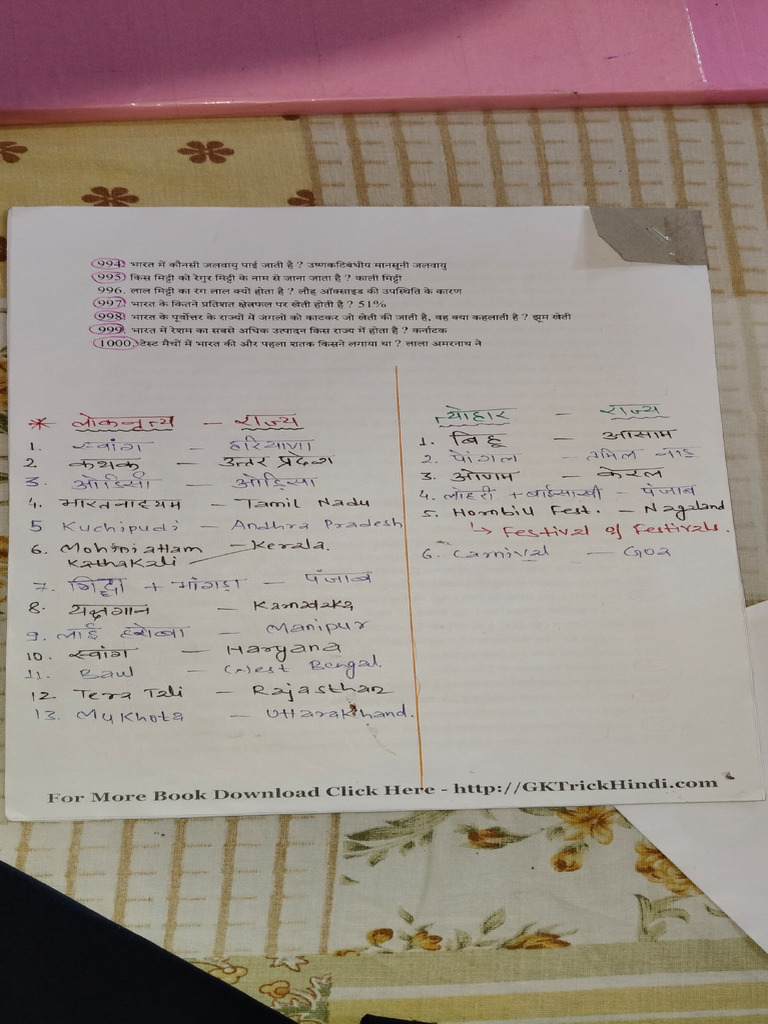 994. भारत में कौनसी जलवायु पाई जाती है ? उष्णकटिबंधीय मानसूनी जलवायु
995. किस मिट्टी को रेगुर मिट्टी के नाम से जाना जाता है ? काली मिट्टी
996. लाल मिट्टी का रंग लाल क्यों होता है ? लौह ऑक्साइड की उपस्थिति के कारण
997. भारत के कितने प्रतिशत क्षेत्रफल पर खेती होती है ? 51%
998. भारत के पूर्वोत्तर के राज्यों में जंगलों को काटकर जो खेती की जाती है, वह क्या कहलाती है ? झूम खेती
999. भारत में रेशम का सबसे अधिक उत्पादन किस राज्य में होता है ? कर्नाटक
1000. टेस्ट मैचों में भारत की और पहला शतक किसने लगाया था ? लाला अमरनाथ ने
* लोकनृत्य – राज्य
1. स्वांग – हरियाणा
2. कथक – उत्तर प्रदेश
3. ओडिसी – ओड़िसा
4. भारतनाट्यम – Tamil Nadu
5 Kuchipudi – Andhra Pradesh
6. Mohiniattam – Kerala.
Kathakali
7. गिद्धा + भांगड़ा – पंजाब
8. यक्षगान – Karnataka
9. लाई हरोबा – Manipur
10. स्वांग – Haryana
11. Baul – West Bengal.
12. Tera Tali – Rajasthan
13. Mukhota – Uttarakhand.
त्योहार – राज्य
1. बिहू – आसाम
2. पोंगल – तमिल नाडू
3. ओणम – केरल
4. लोहरी + बाईसाखी – पंजाब
5. Hornbill Fest. – Nagaland
↳ Festival of Festivals.
6. Carnival – Goa
For More Book Download Click Here - http://GKTrickHindi.com